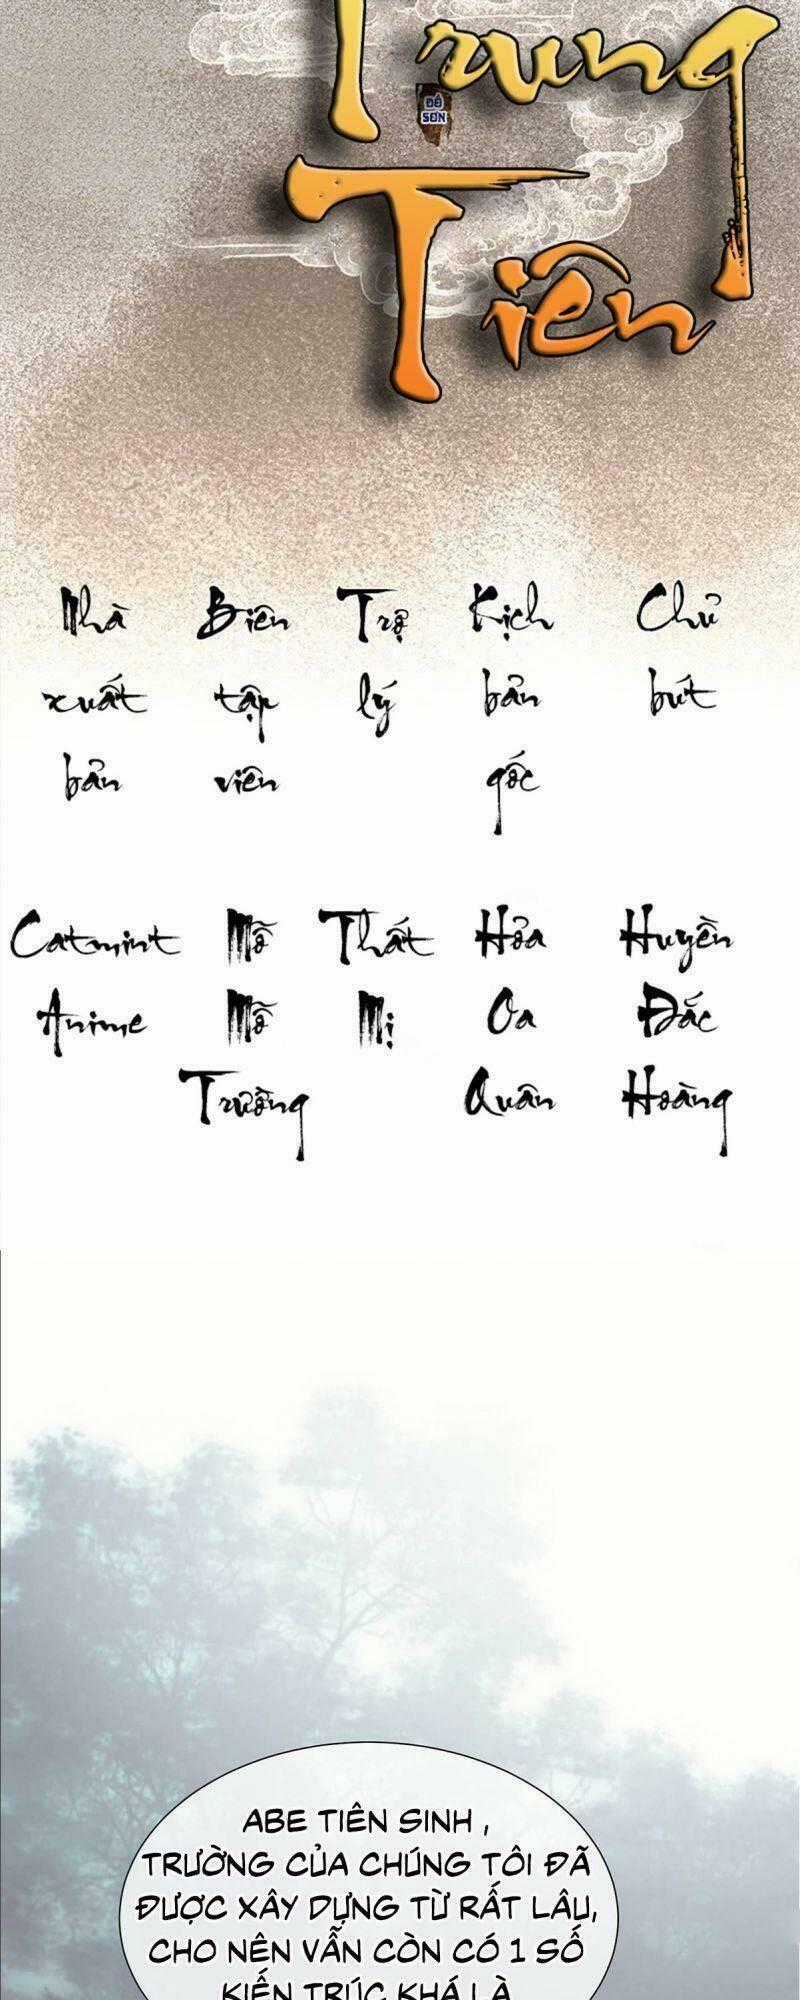 Trung
ĐÔ
SƠN
Tiên
Nhà Biên Trợ Kịch Chủ
xuất tập lý bản bút
bản viên gốc
Catmint Mỗ Thất Hỏa Huyền
Anime Mỗ Mị Oa Đắc
Trường Quân Hoàng
ABE TIÊN SINH ,
TRƯỜNG CỦA CHÚNG TÔI ĐÃ
ĐƯỢC XÂY DỰNG TỪ RẤT LÂU,
CHO NÊN VẪN CÒN CÓ 1 SỐ
KIẾN TRÚC KHÁ LÀ